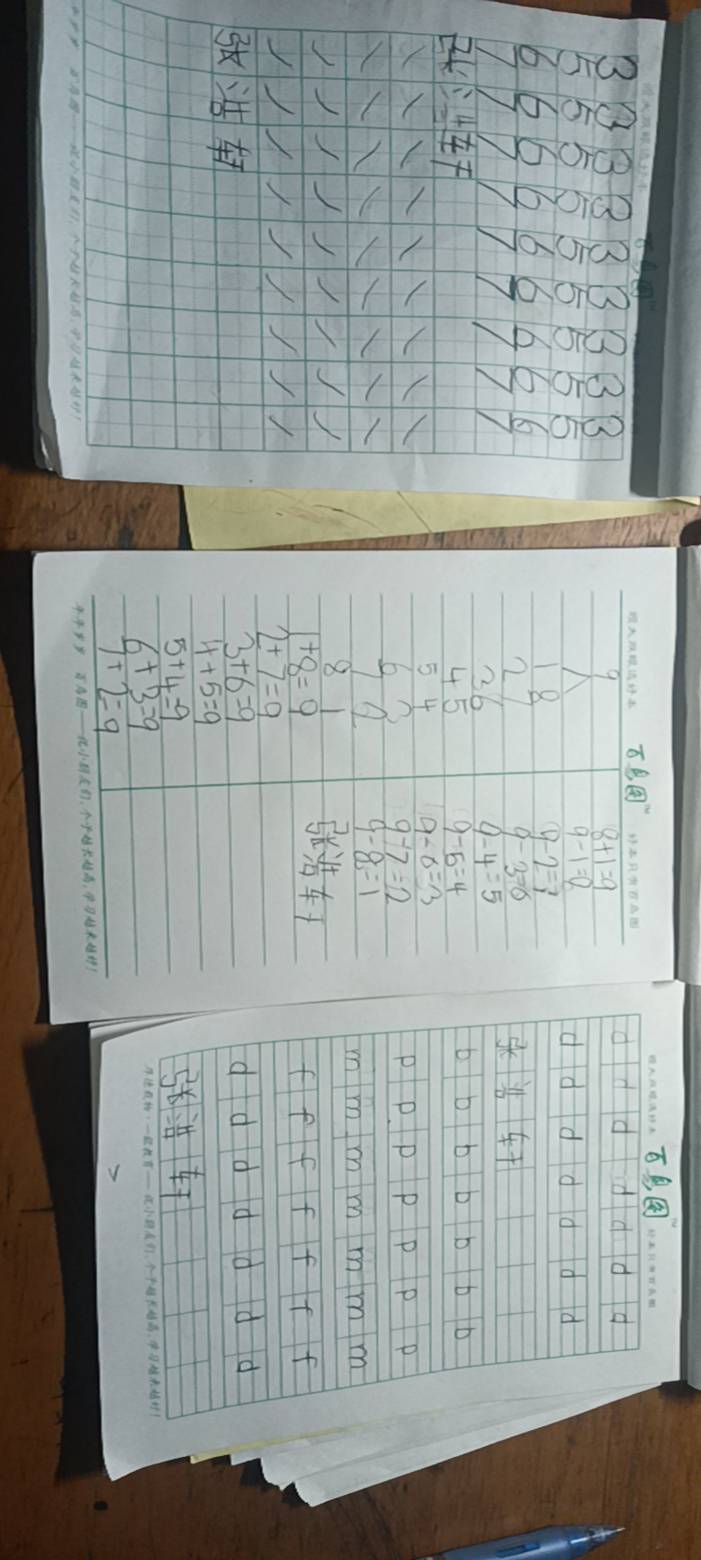 百易图
3 3 3 3 3 3 3 3 3
5 5 5 5 5 5 5 5 5
6 6 6 6 6 6 6 6 6
7 7 7 7 7 7 7 7 7
张浩轩
张浩轩
百易图
9
1 8
2 7
3 6
4 5
5 4
6 3
7 2
8 1
1+8=9
2+7=9
3+6=9
4+5=9
5+4=9
6+3=9
7+2=9
8+1=9
9-1=8
9-2=7
9-3=6
9-4=5
9-5=4
9-6=3
9-7=2
9-8=1
张浩轩
百易图
d d d d d d d
d d d d d d d
张浩轩
b b b b b b b
p p p p p p p
m m m m m m m
f f f f f f f
d d d d d d d
张浩轩